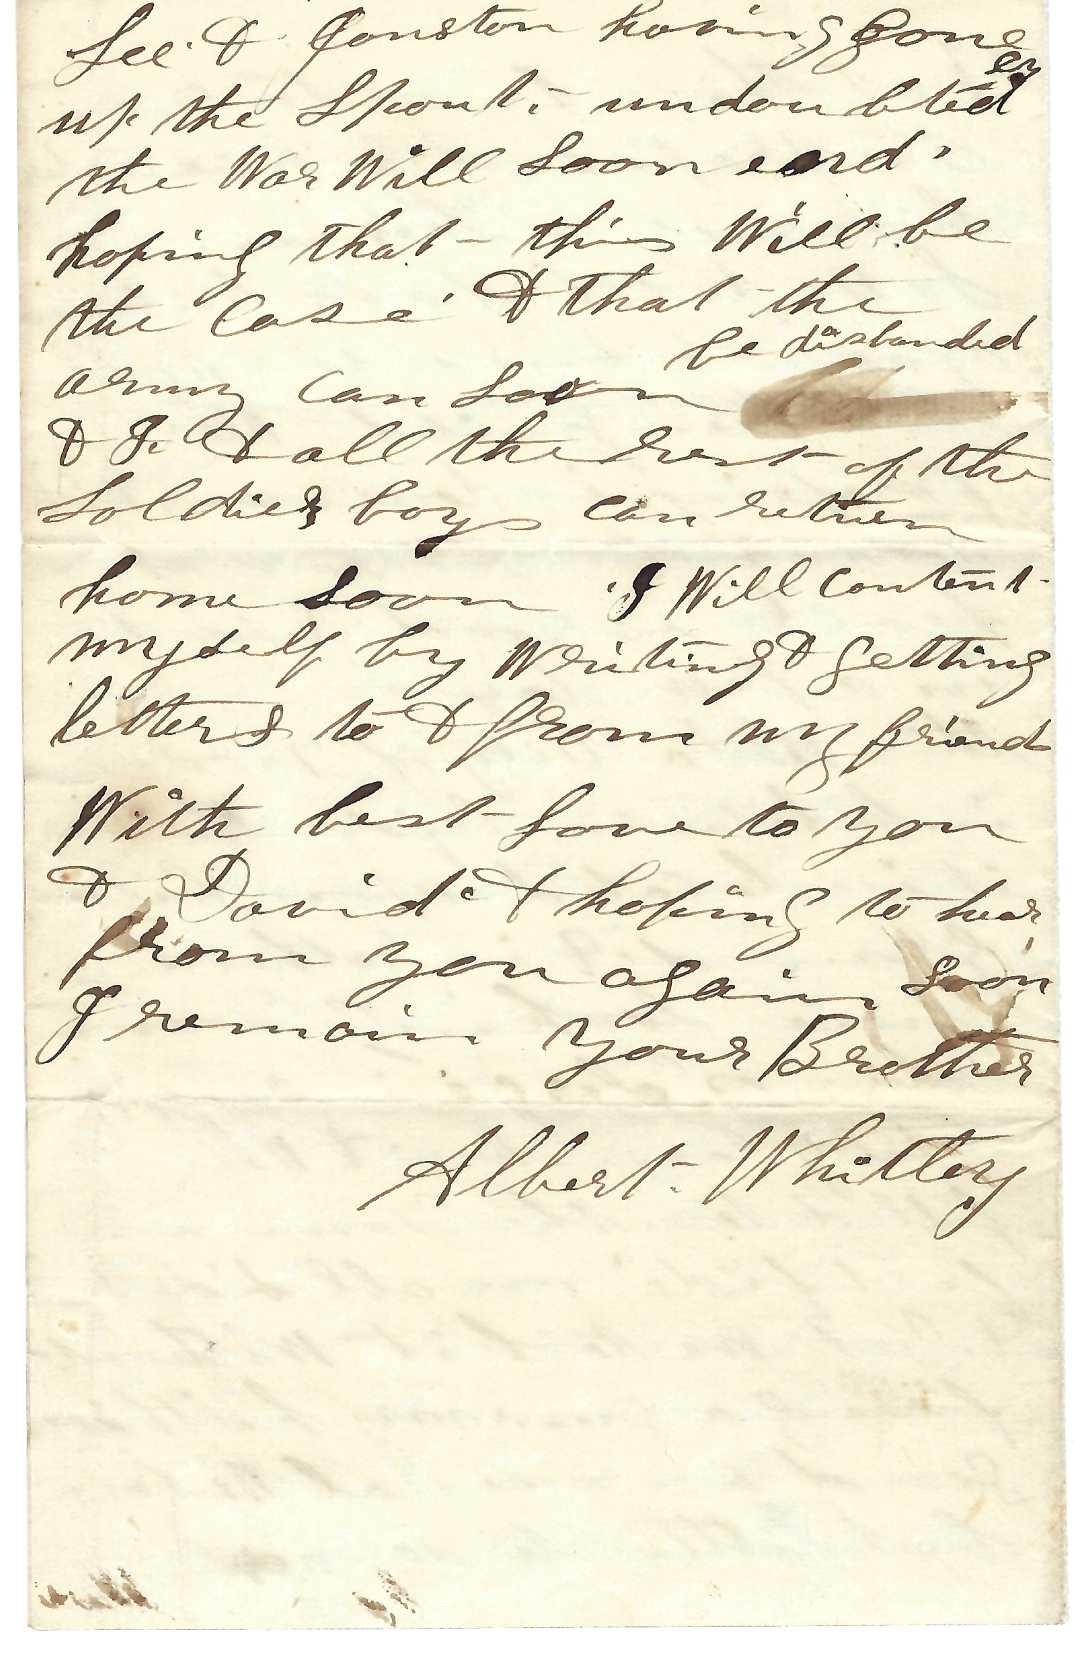 Lee & Jonston having gone
up the spout, undoubtedly
the War Will soon end.
hoping that this Will be
the case & that the
army can soon be disbanded
& I & all the rest of the
soldiers boys can return
home soon I Will content
myself by Writing & getting
letters to & from my friends
With best love to you
& David & hoping to hear
from you again soon
I remain your Brother
Albert Whittey